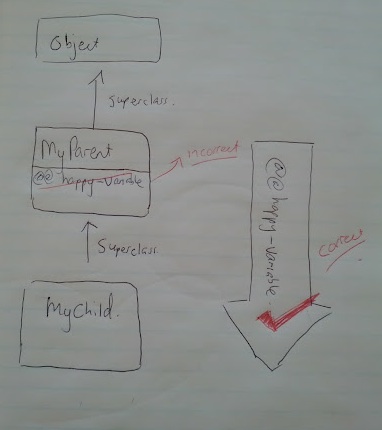 Object
Superclass.
MyParent
@@happy-variable
incorrect
Superclass
MyChild.
@@happy-variable.
correct